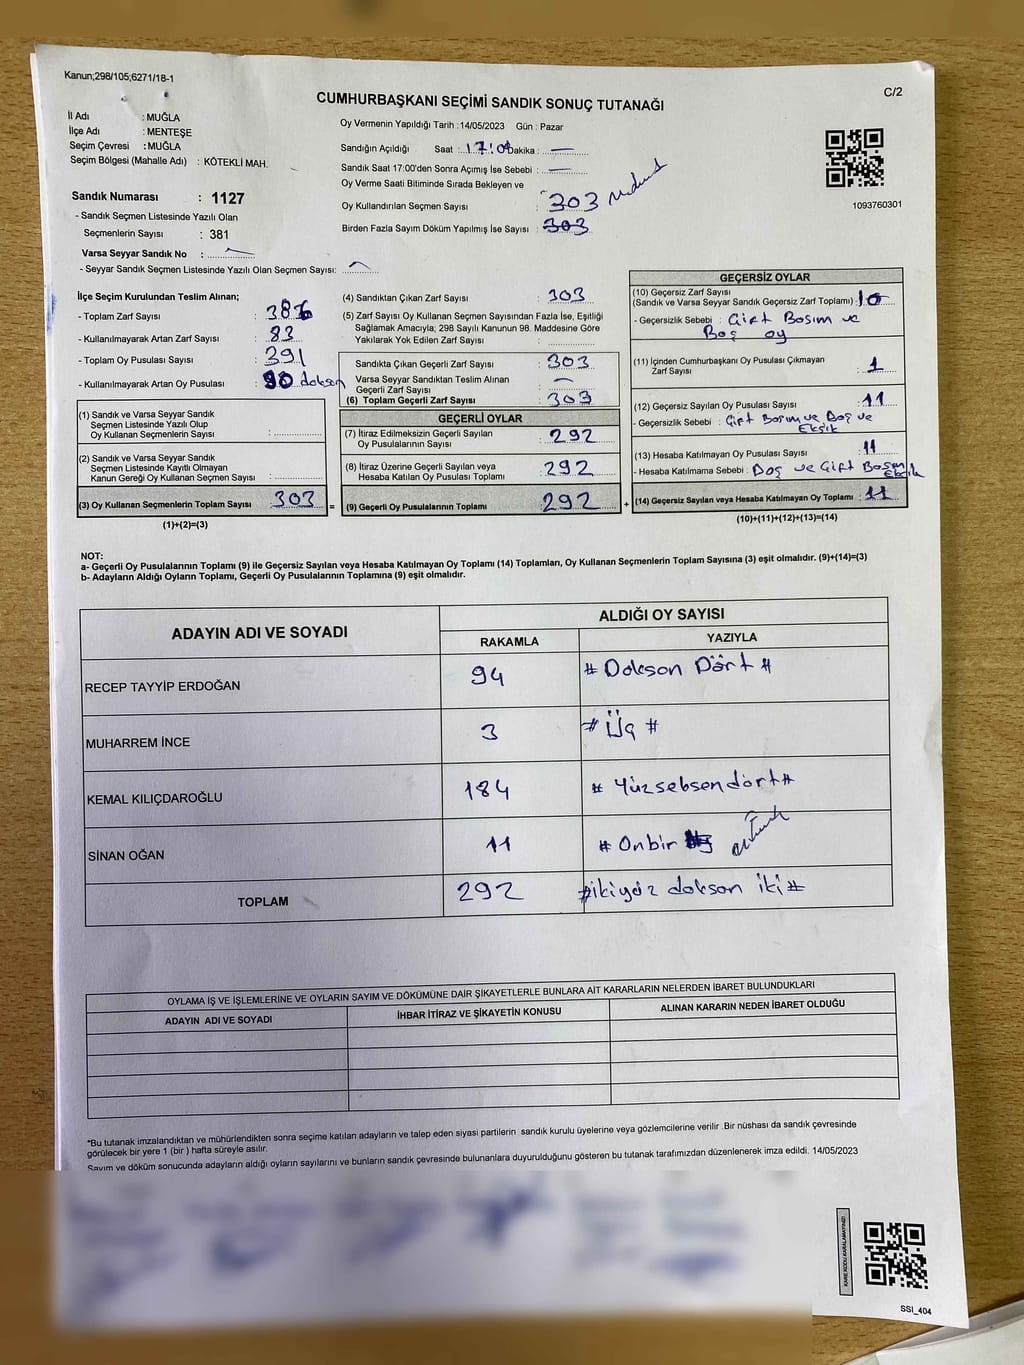 Kanun;298/105;6271/18-1
C/2
CUMHURBAŞKANI SEÇİMİ SANDIK SONUÇ TUTANAĞI
İl Adı : MUĞLA
İlçe Adı : MENTEŞE
Seçim Çevresi : MUĞLA
Seçim Bölgesi (Mahalle Adı) : KÖTEKLİ MAH.
Sandık Numarası : 1127
- Sandık Seçmen Listesinde Yazılı Olan
Seçmenlerin Sayısı : 381
Varsa Seyyar Sandık No :
- Seyyar Sandık Seçmen Listesinde Yazılı Olan Seçmen Sayısı:
Oy Vermenin Yapıldığı Tarih :14/05/2023 Gün : Pazar
Sandığın Açıldığı Saat : 17:04 Dakika : —
Sandık Saat 17:00'den Sonra Açımış İse Sebebi : —
Oy Verme Saati Bitiminde Sırada Bekleyen ve
Oy Kullandırılan Seçmen Sayısı : 303
Birden Fazla Sayım Döküm Yapılmış İse Sayısı : 303
1093760301
İlçe Seçim Kurulundan Teslim Alınan;
- Toplam Zarf Sayısı : 386
- Kullanılmayarak Artan Zarf Sayısı : 83
- Toplam Oy Pusulası Sayısı : 391
- Kullanılmayarak Artan Oy Pusulası : 90 doksan
(1) Sandık ve Varsa Seyyar Sandık
Seçmen Listesinde Yazılı Olup
Oy Kullanan Seçmenlerin Sayısı :
(2) Sandık ve Varsa Seyyar Sandık
Seçmen Listesinde Kayıtlı Olmayan
Kanun Gereği Oy Kullanan Seçmen Sayısı :
(3) Oy Kullanan Seçmenlerin Toplam Sayısı : 303 =
(1)+(2)=(3)
(4) Sandıktan Çıkan Zarf Sayısı : 303
(5) Zarf Sayısı Oy Kullanan Seçmen Sayısından Fazla İse, Eşitliği
Sağlamak Amacıyla; 298 Sayılı Kanunun 98. Maddesine Göre
Yakılarak Yok Edilen Zarf Sayısı :
Sandıkta Çıkan Geçerli Zarf Sayısı : 303
Varsa Seyyar Sandıktan Teslim Alınan
Geçerli Zarf Sayısı :
(6) Toplam Geçerli Zarf Sayısı : 303
GEÇERLİ OYLAR
(7) İtiraz Edilmeksizin Geçerli Sayılan
Oy Pusulalarının Sayısı : 292
(8) İtiraz Üzerine Geçerli Sayılan veya
Hesaba Katılan Oy Pusulası Toplamı : 292
(9) Geçerli Oy Pusulalarının Toplamı : 292 +
GEÇERSİZ OYLAR
(10) Geçersiz Zarf Sayısı
(Sandık ve Varsa Seyyar Sandık Geçersiz Zarf Toplamı) : 10
- Geçersizlik Sebebi : Çift Basım ve
Boş oy
(11) İçinden Cumhurbaşkanı Oy Pusulası Çıkmayan
Zarf Sayısı : 1
(12) Geçersiz Sayılan Oy Pusulası Sayısı : 11
- Geçersizlik Sebebi : Çift Basım ve Boş ve
Eksik
(13) Hesaba Katılmayan Oy Pusulası Sayısı : 11
- Hesaba Katılmama Sebebi : Boş ve Çift Basım
Eksik
(14) Geçersiz Sayılan veya Hesaba Katılmayan Oy Toplamı : 11
(10)+(11)+(12)+(13)=(14)
NOT:
a- Geçerli Oy Pusulalarının Toplamı (9) ile Geçersiz Sayılan veya Hesaba Katılmayan Oy Toplamı (14) Toplamları, Oy Kullanan Seçmenlerin Toplam Sayısına (3) eşit olmalıdır. (9)+(14)=(3)
b- Adayların Aldığı Oyların Toplamı, Geçerli Oy Pusulalarının Toplamına (9) eşit olmalıdır.
ADAYIN ADI VE SOYADI
ALDIĞI OY SAYISI
RAKAMLA YAZIYLA
RECEP TAYYİP ERDOĞAN 94 # Doksan Dört #
MUHARREM İNCE 3 # Üç #
KEMAL KILIÇDAROĞLU 184 # Yüzseksendört #
SİNAN OĞAN 11 # Onbir
TOPLAM 292 # ikiyüz doksan iki #
OYLAMA İŞ VE İŞLEMLERİNE VE OYLARIN SAYIM VE DÖKÜMÜNE DAİR ŞİKAYETLERLE BUNLARA AİT KARARLARIN NELERDEN İBARET BULUNDUKLARI
ADAYIN ADI VE SOYADI İHBAR İTİRAZ VE ŞİKAYETİN KONUSU ALINAN KARARIN NEDEN İBARET OLDUĞU
*Bu tutanak imzalandıktan ve mühürlendikten sonra seçime katılan adayların ve talep eden siyasi partilerin sandık kurulu üyelerine veya gözlemcilerine verilir .Bir nüshası da sandık çevresinde
görülecek bir yere 1 (bir ) hafta süreyle asılır.
Sayım ve döküm sonucunda adayların aldığı oyların sayılarını ve bunların sandık çevresinde bulunanlara duyurulduğunu gösteren bu tutanak tarafımızdan düzenlenerek imza edildi. 14/05/2023
KARE KODU KARALAMAYINIZ!
SSI_404